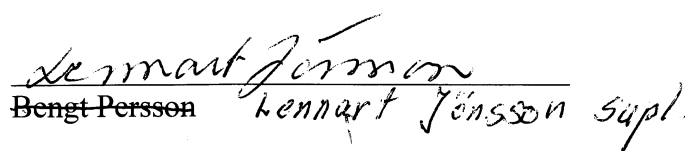 Lennart Jönsson
Bengt Persson Lennart Jönsson supl.